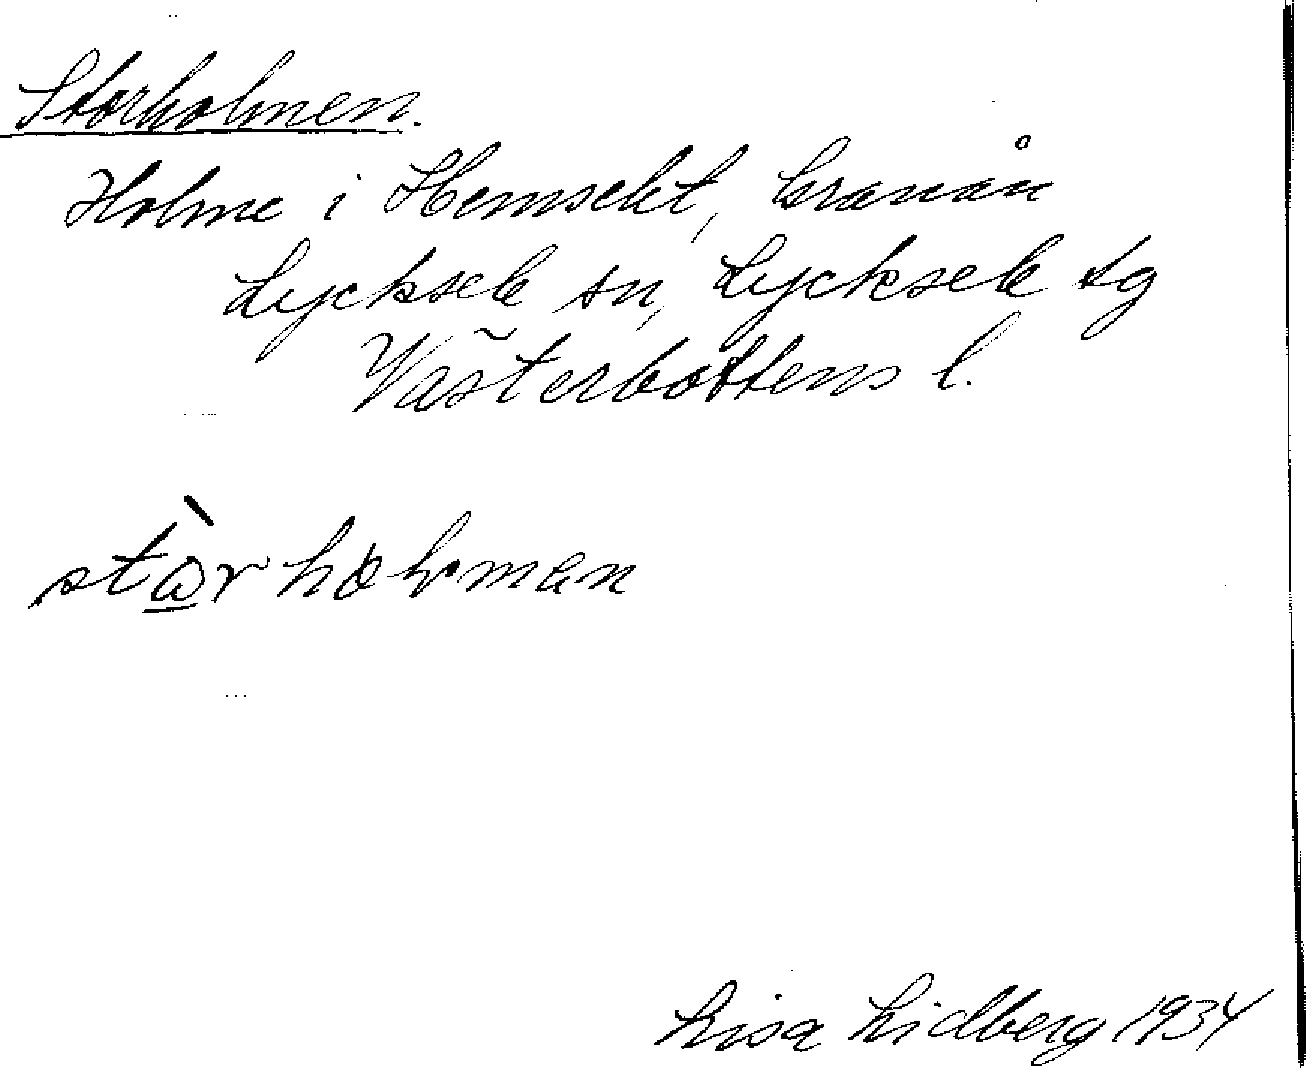 Storholmen.
Holme i Hemselet, Granån
Lycksele sn, Lycksele tg
Västerbottens l.
Lisa Lidberg 1934